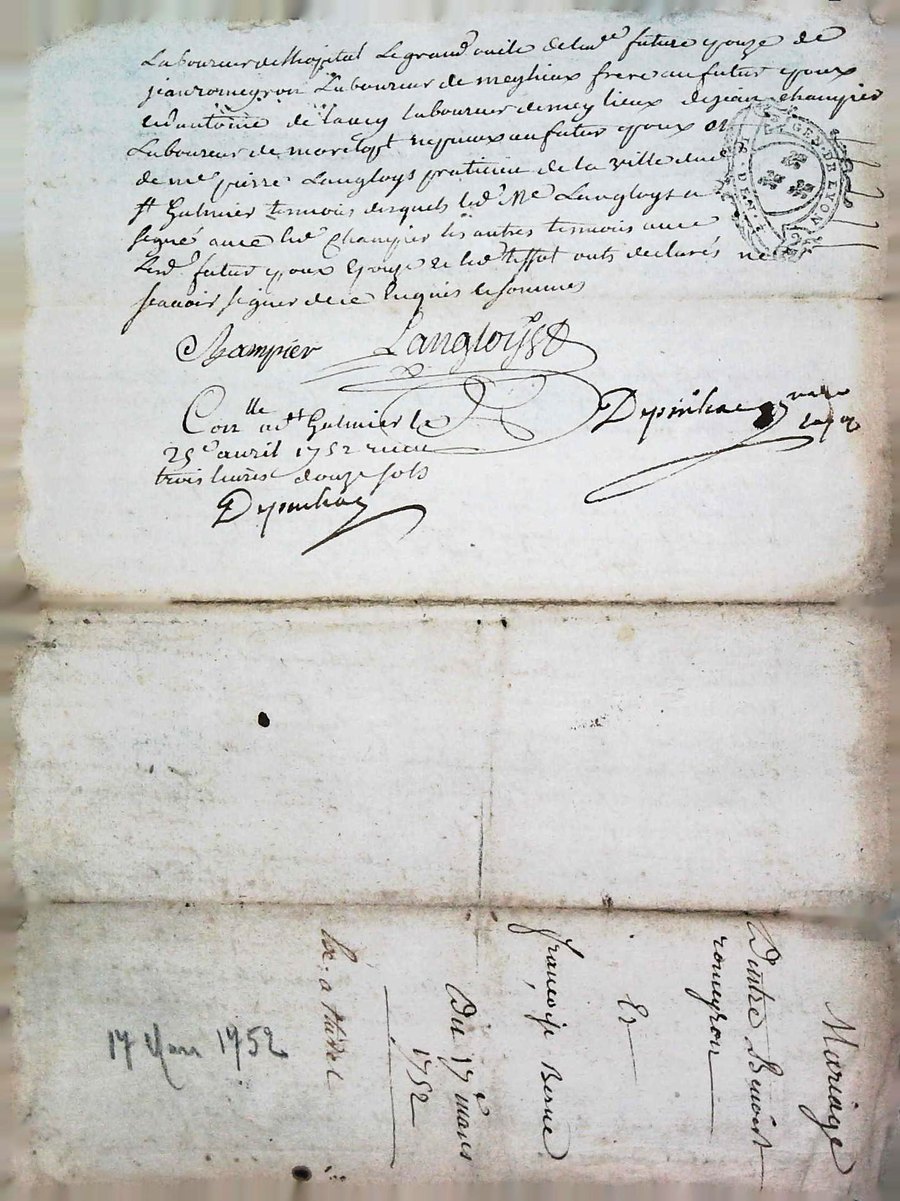 Laboureur de lhopital Le grand oncle de lad.e future epouze de
jean romeyron Laboureur de meylieux frere au futur epoux
et d'antoine Laboureur de meylieux de jean champier
Laboureur de nepveux au futur epoux
de me pierre Langloys praticien de la ville de
st Galmier temoins lesquels led. Me Langloys a
signé avec led. Champier les autres temoins avec
Lesd. futur epoux Epouze et led. ont declarés ne
scavoir signer de ce Enquis et sommés
Champier Langloys
Depinhac
Con.lle a st Galmier le
25e avril 1752 recu
trois livres douze sols
Depinhac
GEN. DE LYON
Mariage
Dentre Benoist
romeyron
Et
françoise Berne
Du 17e mars
1752
17 Mars 1752